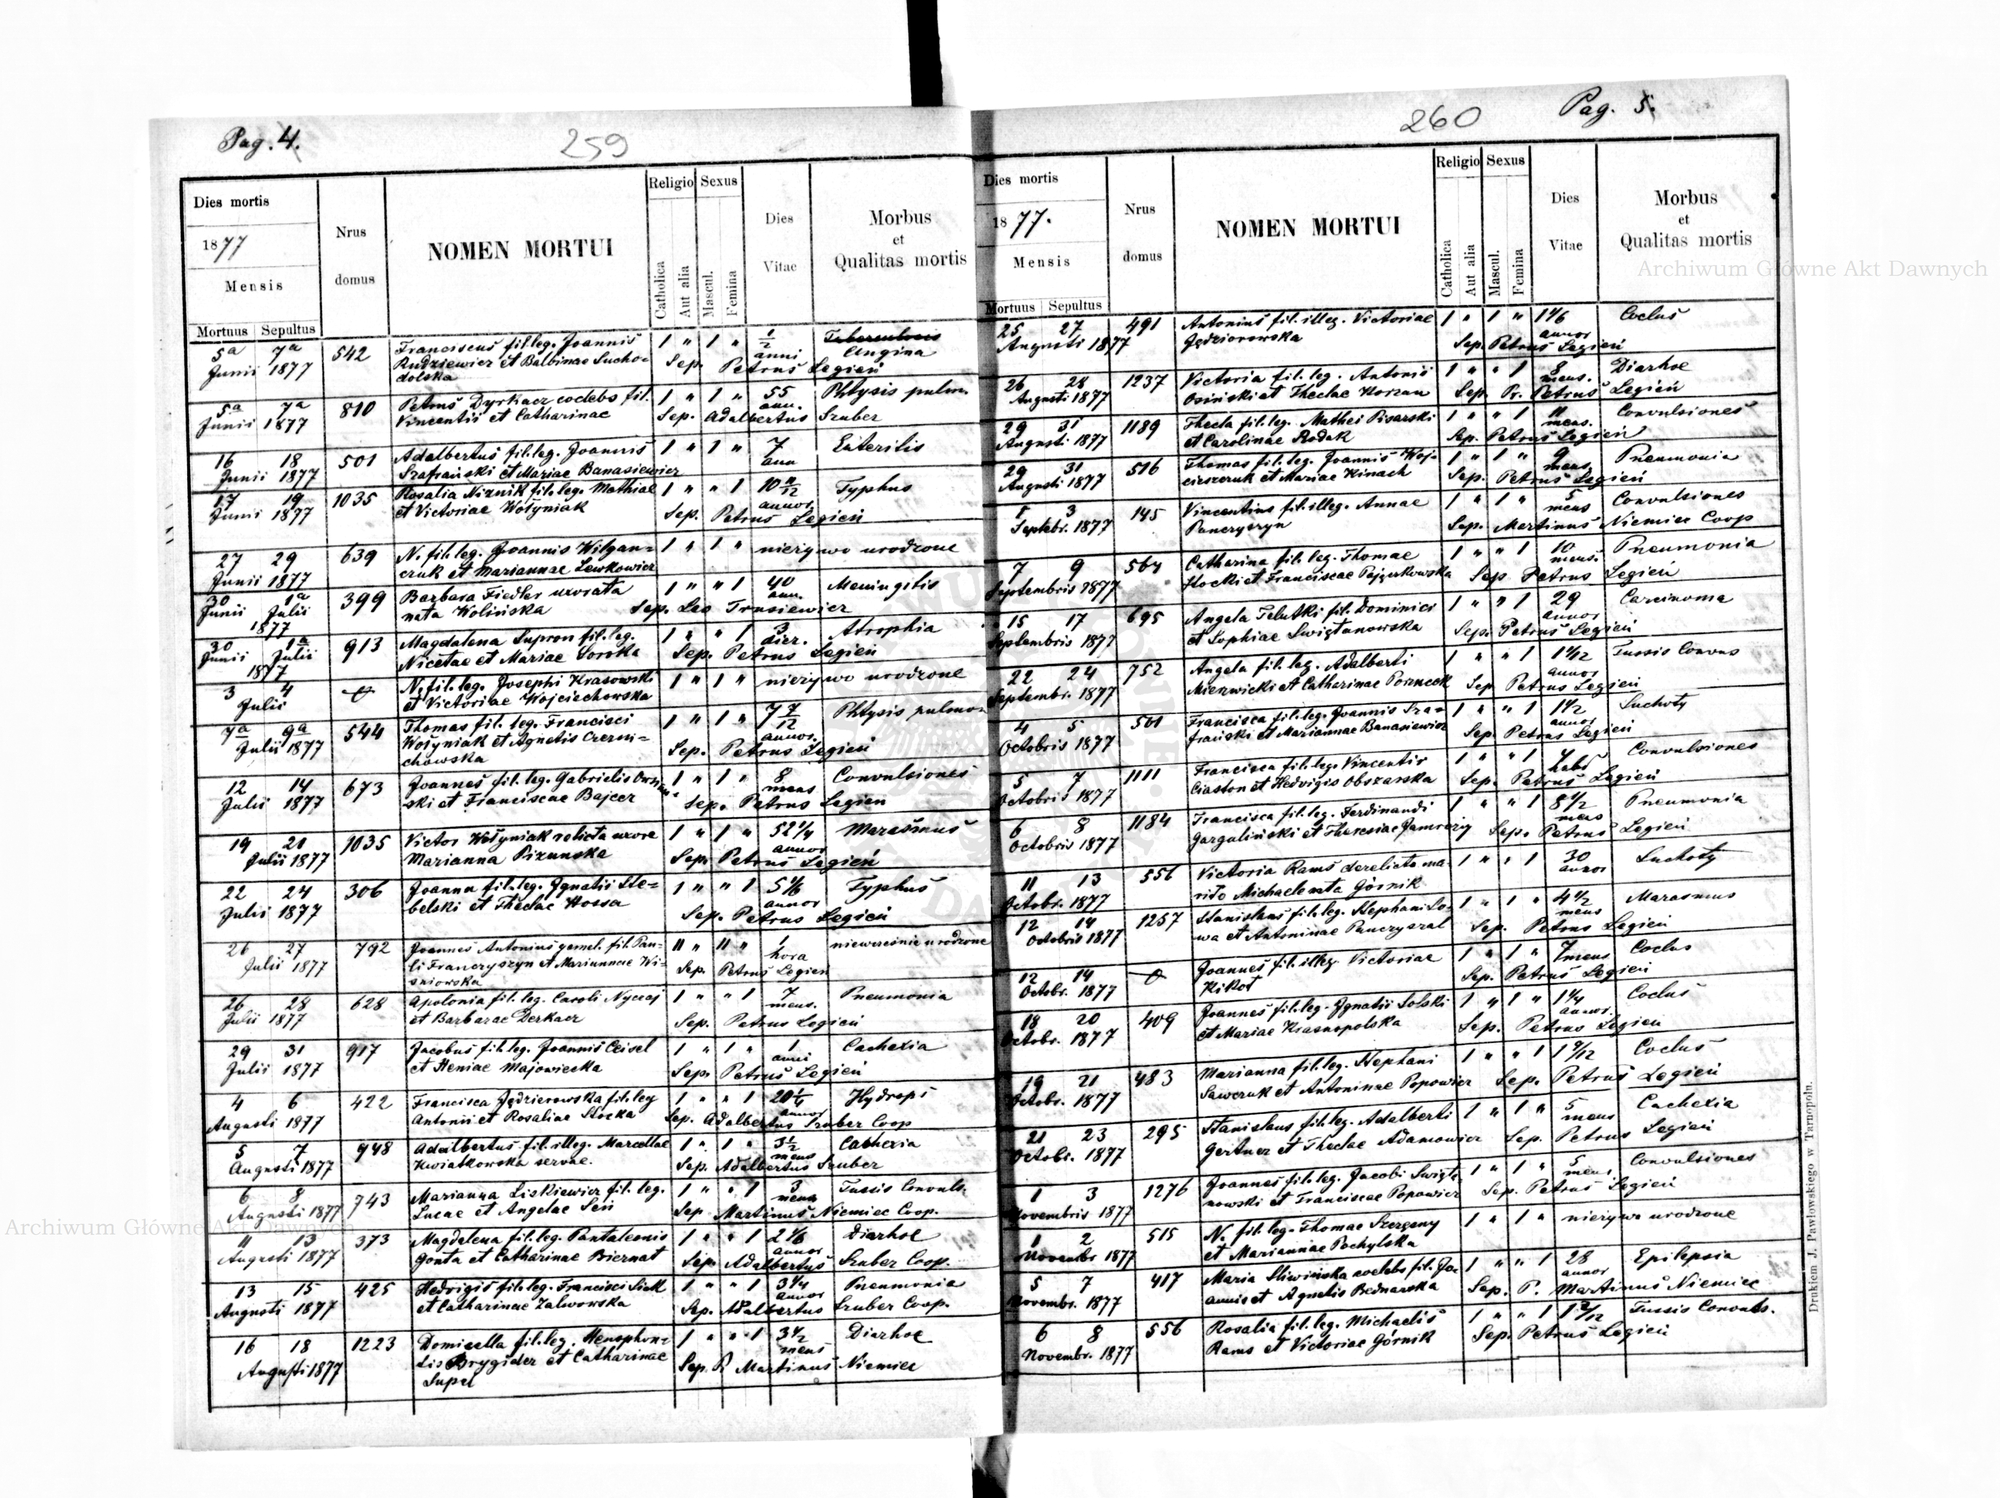 Pag. 4.
259
Dies mortis
1877
Mensis
Mortuus Sepultus
Nrus domus
NOMEN MORTUI
Religio Sexus
Catholica
Aut alia
Mascul.
Femina
Dies Vitae
Morbus
et
Qualitas mortis
5ª 7ª 542 Franciscus fil. leg. Joannis 1 " 1 " 1/2 Tuberculosis
Junii 1877 Rudziewicz et Balbinae Sucho= anni Angina
dolska Sep. Petrus Legień
5ª 7ª 810 Petrus Dyrkacz coelebs fil. 1 " 1 " 55 Phtysis pulm.
Junii 1877 Vincentii et Catharinae ann. Sep. Adalbertus Szuber
16 18 501 Adalbertus fil. leg. Joannis 1 " 1 " 7 Enteritis
Junii 1877 Szafrański et Mariae Banasiewicz ann
17 19 1035 Rosalia Niznik fil. leg. Mathiae 1 " " 1 10 11/12 Typhus
Junii 1877 et Victoriae Wołyniak annor. Sep. Petrus Legień
27 29 639 N. fil. leg. Joannis Wilgan= 1 " 1 " nieżywo urodzone
Junii 1877 czuk et Mariannae Lewkowicz
30 1ª 399 Barbara Fiedler uxorata 1 " " 1 40 Meningitis
Junii Julii nata Wolińska ann. Sep. Leo Trusiewicz
1877
30 1ª 913 Magdalena Supron fil. leg. 1 " " 1 3 Atrophia
Junii Julii Nicetae et Mariae Sorska dier. Sep. Petrus Legień
1877
3 4 N. fil. leg. Josephi Krasowski 1 " 1 " nieżywo urodzone
Julii et Victoriae Wojciechowska
7ª 9ª 544 Thomas fil. leg. Francisci 1 " 1 " 7 7/12 Phtysis pulmon.
Julii 1877 Wołyniak et Agnetis Czerni= annor.
chowska Sep. Petrus Legień
12 14 673 Joannes fil. leg. Gabrielis 1 " 1 " 8 Convulsiones
Julii 1877 ski et Franciscae Bajcer mens Sep. Petrus Legień
19 21 1035 Victor Wołyniak relicta uxore 1 " 1 " 52 1/4 Marasmus
Julii 1877 Marianna Pizunska annor Sep. Petrus Legień
22 24 306 Joanna fil. leg. Ignatii Ste= 1 " " 1 5 1/6 Typhus
Julii 1877 belski et Theclae Kossa annor Sep. Petrus Legień
26 27 792 Joannes Antonius gemel. fil. Pau= 11 " 11 " 1 niewcześnie urodzone
Julii 1877 li Franczyszyn et Mariannae Wi= hora
śniowska Sep. Petrus Legień
26 28 628 Apolonia fil. leg. Caroli Nyczaj 1 " " 1 7 Pneumonia
Julii 1877 et Barbarae Derkacz mens. Sep. Petrus Legień
29 31 917 Jacobus fil. leg. Joannis Ceisel 1 " 1 " 1 Cachexia
Julii 1877 et Xeniae Majowiecka anni Sep. Petrus Legień
4 6 422 Francisca Jędzierowska fil. leg 1 " " 1 20 1/4 Hydrops
Augusti 1877 Antonii et Rosaliae Słocka annor Sep. Adalbertus Szuber Coop
5 7 948 Adalbertus fil. illeg. Marcellae 1 " 1 " 3 1/2 Cachexia
Augusti 1877 Kwiatkowska servae. mens Sep. Adalbertus Szuber
6 8 743 Marianna Liskiewicz fil. leg. 1 " " 1 3 Tussis Convuls.
Augusti 1877 Lucae et Angelae Seń mens Sep. Martinus Niemiec Coop.
11 13 373 Magdalena fil. leg. Pantaleonis 1 " " 1 2 1/6 Diarhoe
Augusti 1877 Gonta et Catharinae Biernat annor Sep. Adalbertus Szuber Coop.
13 15 425 Hedvigis fil. leg. Francisci Siek 1 " " 1 3 1/4 Pneumonia
Augusti 1877 et Catharinae Zalwowska annor Sep. Adalbertus Szuber Coop.
16 18 1223 Domicella fil. leg. Xenophon= 1 " " 1 3 1/2 Diarhoe
Augusti 1877 tis Brygider et Catharinae mens
Supel Sep. P. Martinus Niemiec
260
Pag. 5.
Dies mortis
1877.
Mensis
Mortuus Sepultus
Nrus domus
NOMEN MORTUI
Religio Sexus
Catholica
Aut alia
Mascul.
Femina
Dies Vitae
Morbus
et
Qualitas mortis
25 27 491 Antonius fil. illeg. Victoriae 1 " 1 " 1 1/6 Coclus
Augusti 1877 Jędziorowska annor Sep. Petrus Legień
26 28 1237 Victoria fil. leg. Antonii 1 " " 1 8 Diarhoe
Augusti 1877 Osiński et Theclae Korzan mens. Sep. Pr. Petrus Legień
29 31 1189 Thecla fil. leg. Mathei Pisarski 1 " " 1 11 Convulsiones
Augusti 1877 et Carolinae Rodak mens. Sep. Petrus Legień
29 31 516 Thomas fil. leg. Joannis Woj= 1 " 1 " 9 Pneumonia
Augusti 1877 cieszczuk et Mariae Kinach mens Sep. Petrus Legień
1 3 145 Vincentius fil. illeg. Annae 1 " 1 " 5 Convulsiones
Septebr. 1877 Panczyszyn mens Sep. Martinus Niemiec Coop
7 9 564 Catharina fil. leg. Thomae 1 " " 1 10 Pneumonia
Septembris 1877 Stocki et Franciscae Pajączkowska mens. Sep. Petrus Legień
15 17 695 Angela Telutki fil. Dominici 1 " " 1 29 Carcinoma
Septembris 1877 et Sophiae Swiątanowska annor Sep. Petrus Legień
22 24 752 Angela fil. leg. Adalberti 1 " " 1 1 1/12 Tussis Convus
Septembr. 1877 Mierzwicki et Catharinae annor Sep. Petrus Legień
4 5 501 Francisca fil. leg. Joannis Sza= 1 " " 1 1 1/2 Suchoty
Octobris 1877 frański et Mariannae Banasiewicz annor Sep. Petrus Legień
5 7 1111 Francisca fil. leg. Vincentis 1 " " 1 Convulsiones
Octobris 1877 Ciaston et Hedvigis Obszarska Sep. Petrus Legień
6 8 1184 Francisca fil. leg. Ferdinandi 1 " " 1 8 1/2 Pneumonia
Octobris 1877 Gargaliński et Theresiae Jamrozy mens Sep. Petrus Legień
11 13 556 Victoria Rams derelicto ma= 1 " " 1 30 Suchoty
Octobr. 1877 rito Michaele nata Górnik annor
12 14 1257 Stanislaus fil. leg. Stephani So= 1 " 1 " 4 1/2 Marasmus
Octobris 1877 wa et Antoninae mens Sep. Petrus Legień
12 14 Joannes fil. illeg. Victoriae 1 " 1 " 7 mens Coclus
Octobr. 1877 Kikot Sep. Petrus Legień
18 20 409 Joannes fil. leg. Ignatii Solski 1 " 1 " 1 1/4 Coclus
Octobr. 1877 et Mariae Krasnopolska annor. Sep. Petrus Legień
19 21 483 Marianna fil. leg. Stephani 1 " " 1 1 9/12 Coclus
Octobr. 1877 Sawczuk et Antoninae Popowicz Sep. Petrus Legień
21 23 295 Stanislaus fil. leg. Adalberti 1 " 1 " 5 Cachexia
Octobr. 1877 Gertner et Theclae Adamowicz mens Sep. Petrus Legień
1 3 1276 Joannes fil. leg. Jacobi Swiąta= 1 " 1 " 5 Convulsiones
Novembris 1877 nowski et Franciscae Popowicz mens Sep. Petrus Legień
1 2 515 N. fil. leg. Thomae Szergeny 1 " 1 " nieżywo urodzone
Novembr 1877 et Mariannae Pochylska
5 7 417 Maria Sliwińska coelebs fil. Jo= 1 " " 1 28 Epilepsia
Novembr. 1877 annis et Agnetis Bednarska annor Sep. P. Martinus Niemiec
6 8 556 Rosalia fil. leg. Michaelis 1 " " 1 1 2/12 Tussis Convuls.
Novembr. 1877 Rams et Victoriae Górnik Sep. Petrus Legień
Drukiem J. Pawłowskiego w Tarnopolu.
Archiwum Główne Akt Dawnych
Archiwum Główne Akt Dawnych